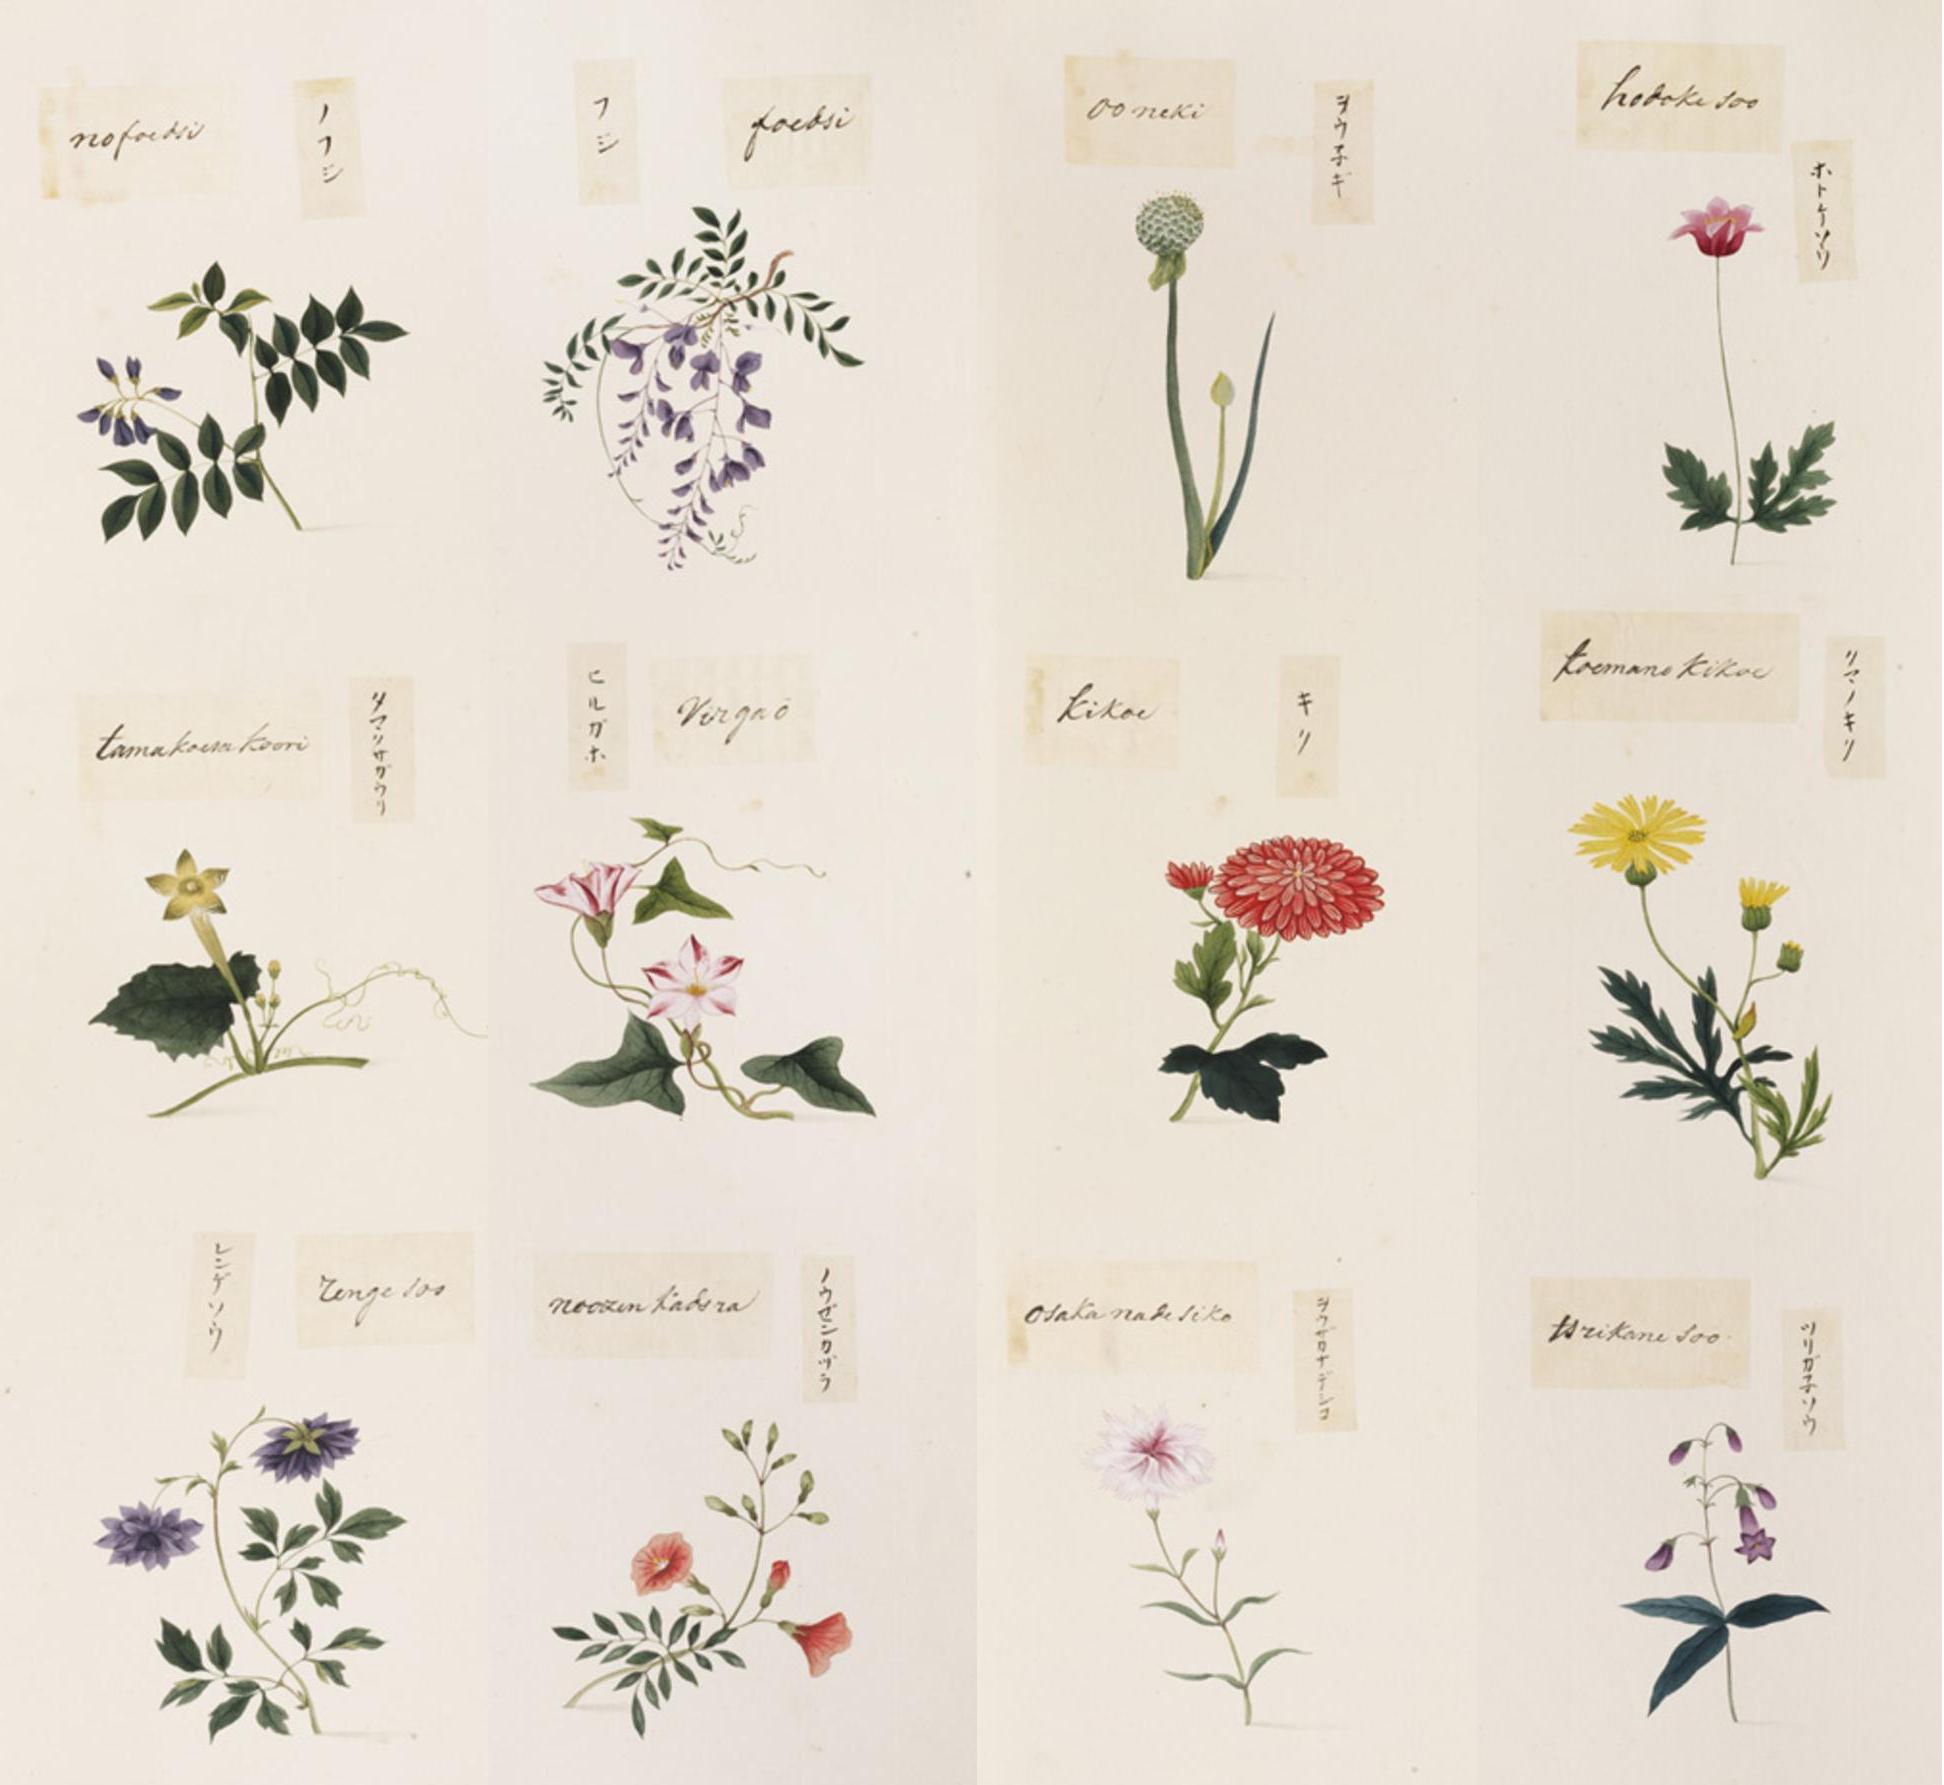 nofoedsi
ノフジ
フジ
foedsi
oo neki
ヲウ子ギ
hodoke soo
ホトケソウ
tamakoesa koori
タマクサガウリ
ヒルガホ
Virgaō
kikoe
キク
toemano kikoe
ツマノキク
レンゲソウ
renge soo
noozen kadsra
ノウゼンカヅラ
osaka nadesiko
ヲウサカナデシコ
tsrikane soo
ツリガ子ソウ